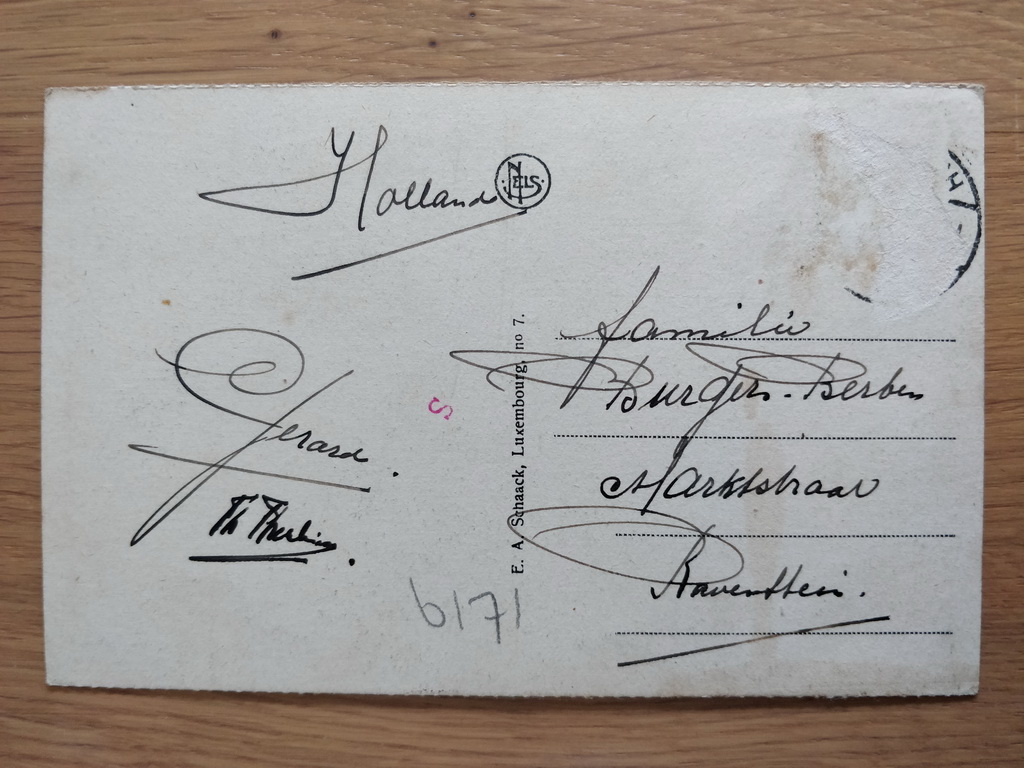 Holland
NELS
Gerard.
Th
E. A. Schaack, Luxembourg, no 7.
S
6171
familie
Burgers-Berben
Marktstraat
Ravenstein.
H